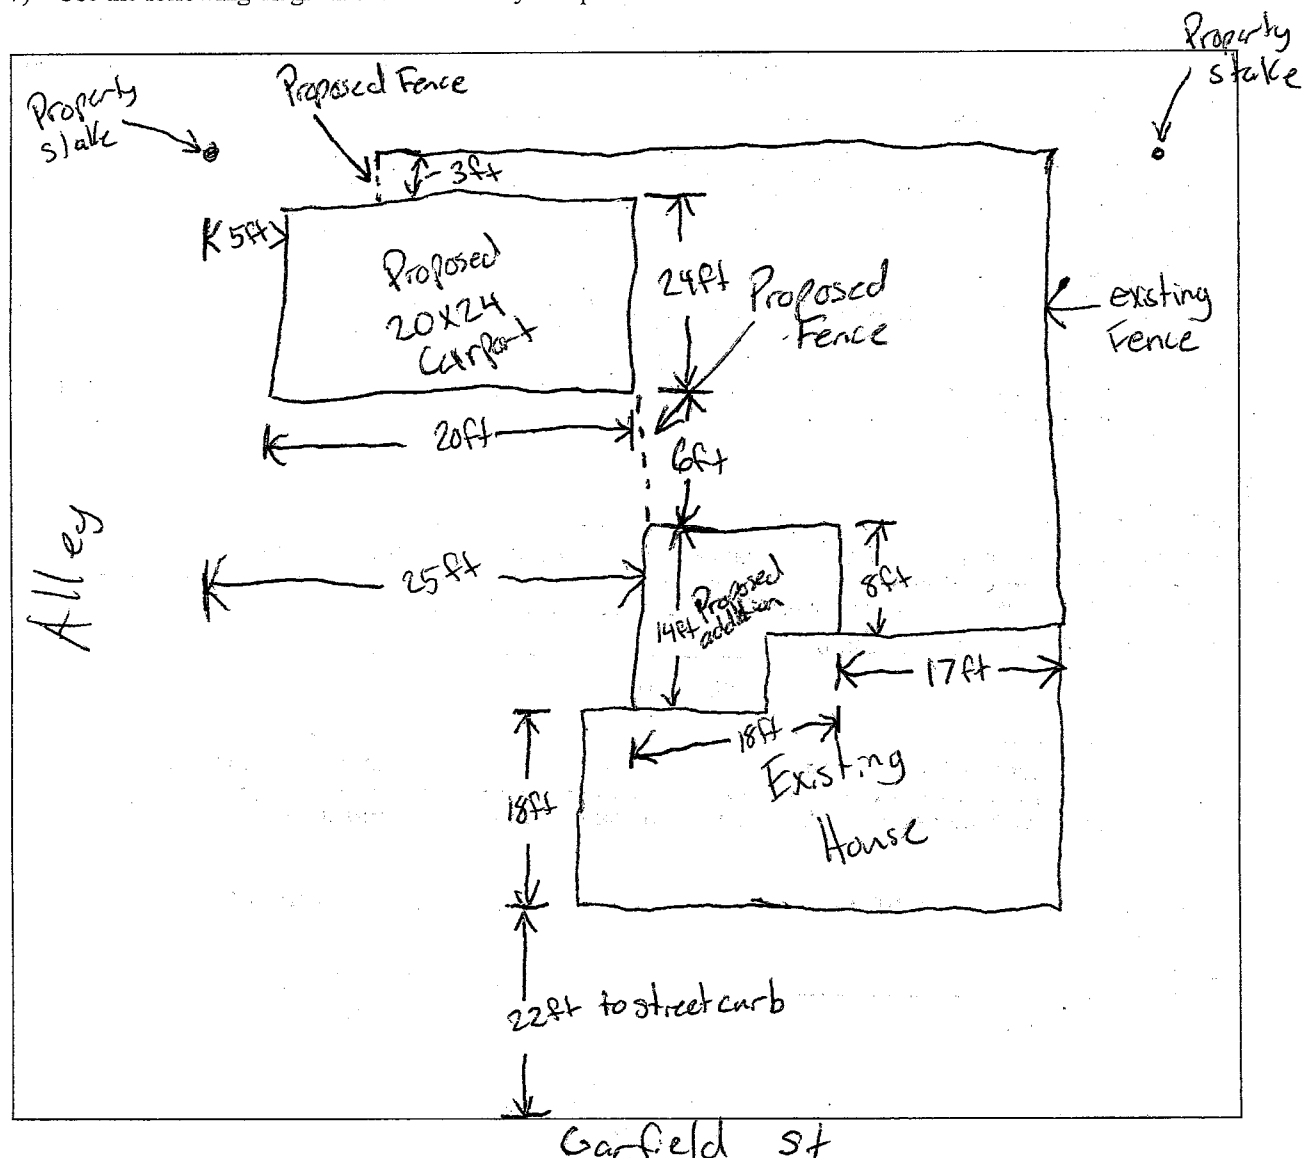 Property
stake
Proposed Fence
Property
stake
3ft
5ft
Proposed
20x24
Carport
24ft
Proposed
Fence
existing
Fence
20ft
6ft
Alley
25ft
14ft
Proposed
addition
8ft
17ft
18ft
18ft
Existing
House
22ft to street curb
Garfield St